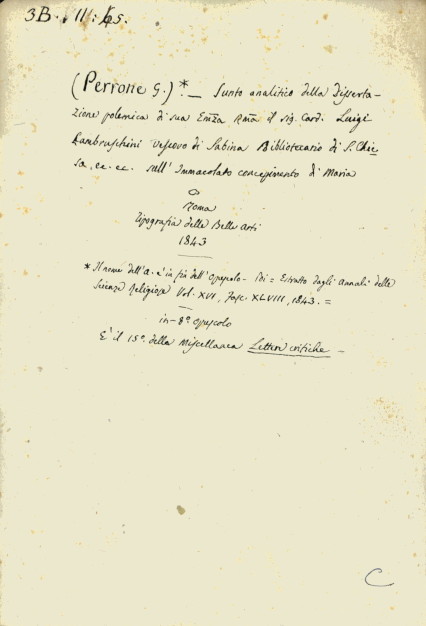 3B. III. 45.
(Perrone G.)* — Sunto analitico della Disserta-
zione polemica di sua Em̃za Rm̃a il sig. Card. Luigi
Lambruschini Vescovo di Sabina Bibliotecario di S. Chie
sa, ec. ec. sull' Immacolato concepimento di Maria
Roma
Tipografia delle Belle Arti
1843
* Il nome dell'A. è in fin dell'opuscolo - Poi = Estratto dagli Annali delle
Scienze Religiose Vol. XVI, Fasc. XLVIII, 1843. =
in-8º opuscolo
È il 15º. della Miscellanea Lettere critiche —
C